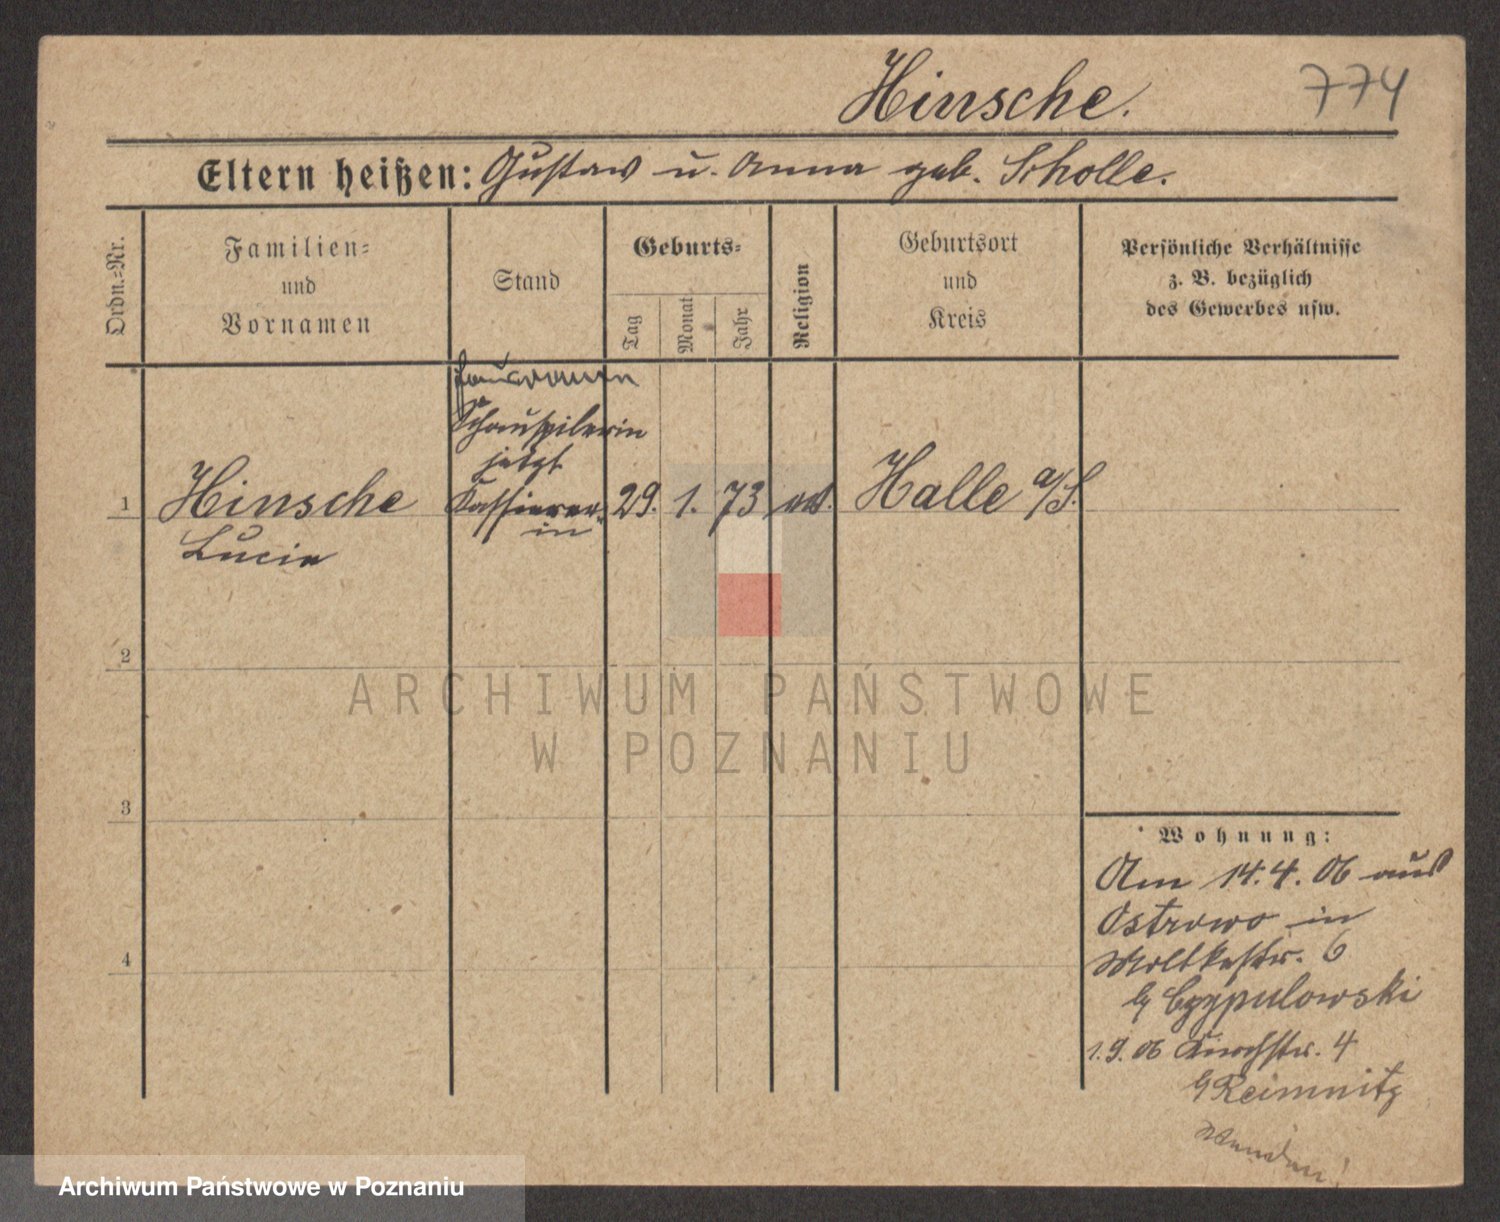 Hinsche.
774
Eltern heißen: Gustav u. Anna geb. Scholle.
Ordn.=Nr.
Familien=
und
Vornamen
Stand
Geburts=
Tag
Monat
Jahr
Religion
Geburtsort
und
Kreis
Persönliche Verhältnisse
z. B. bezüglich
des Gewerbes usw.
Schauspilerin
jetzt
1 Hinsche Kassierer= 29. 1. 73 ev. Halle a/S.
in
Lucie
2
3
4
Wohnung:
Am 14.4.06 aus
Ostrowo in
Moltkestr. 6
b/ Czypulowski
1.9.06 Kirchstr. 4
b/ Reimnitz
Wenden!
ARCHIWUM PAŃSTWOWE
W POZNANIU
Archiwum Państwowe w Poznaniu